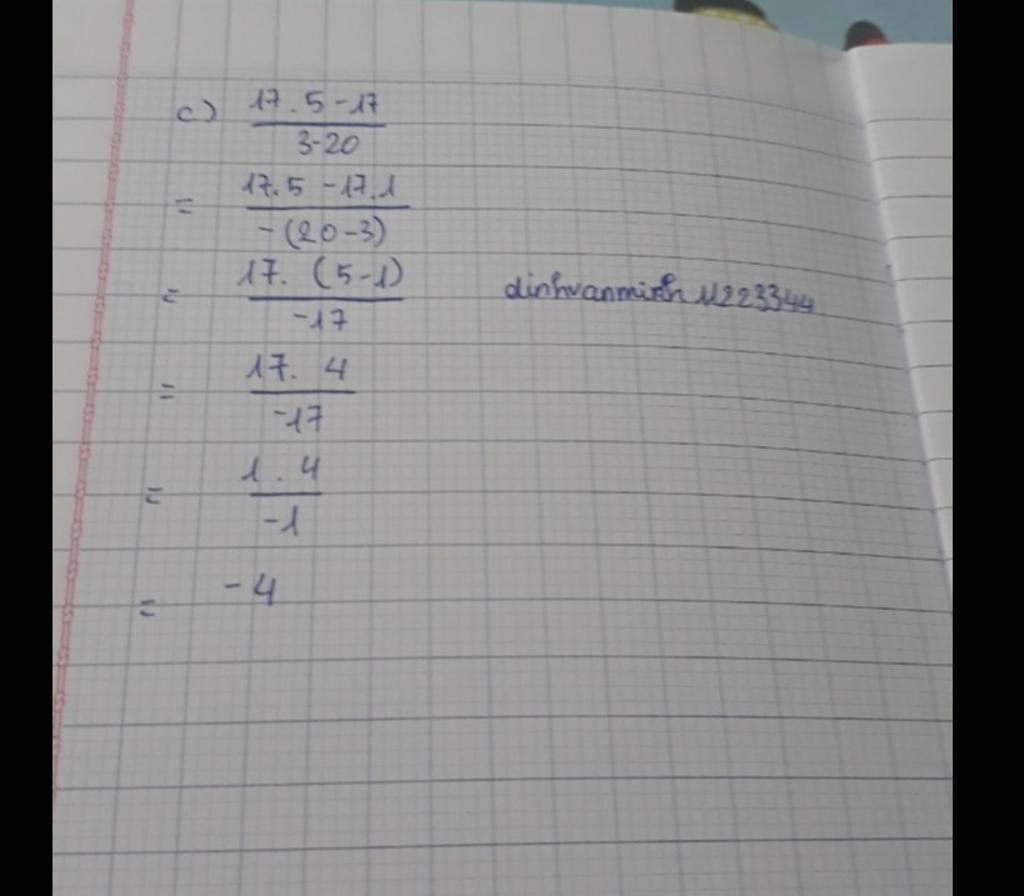 c) 17.5-17
3-20
= 17.5-17.1
-(20-3)
= 17.(5-1)
-17
dinhvanminh 11223344
= 17.4
-17
= 1.4
-1
= -4